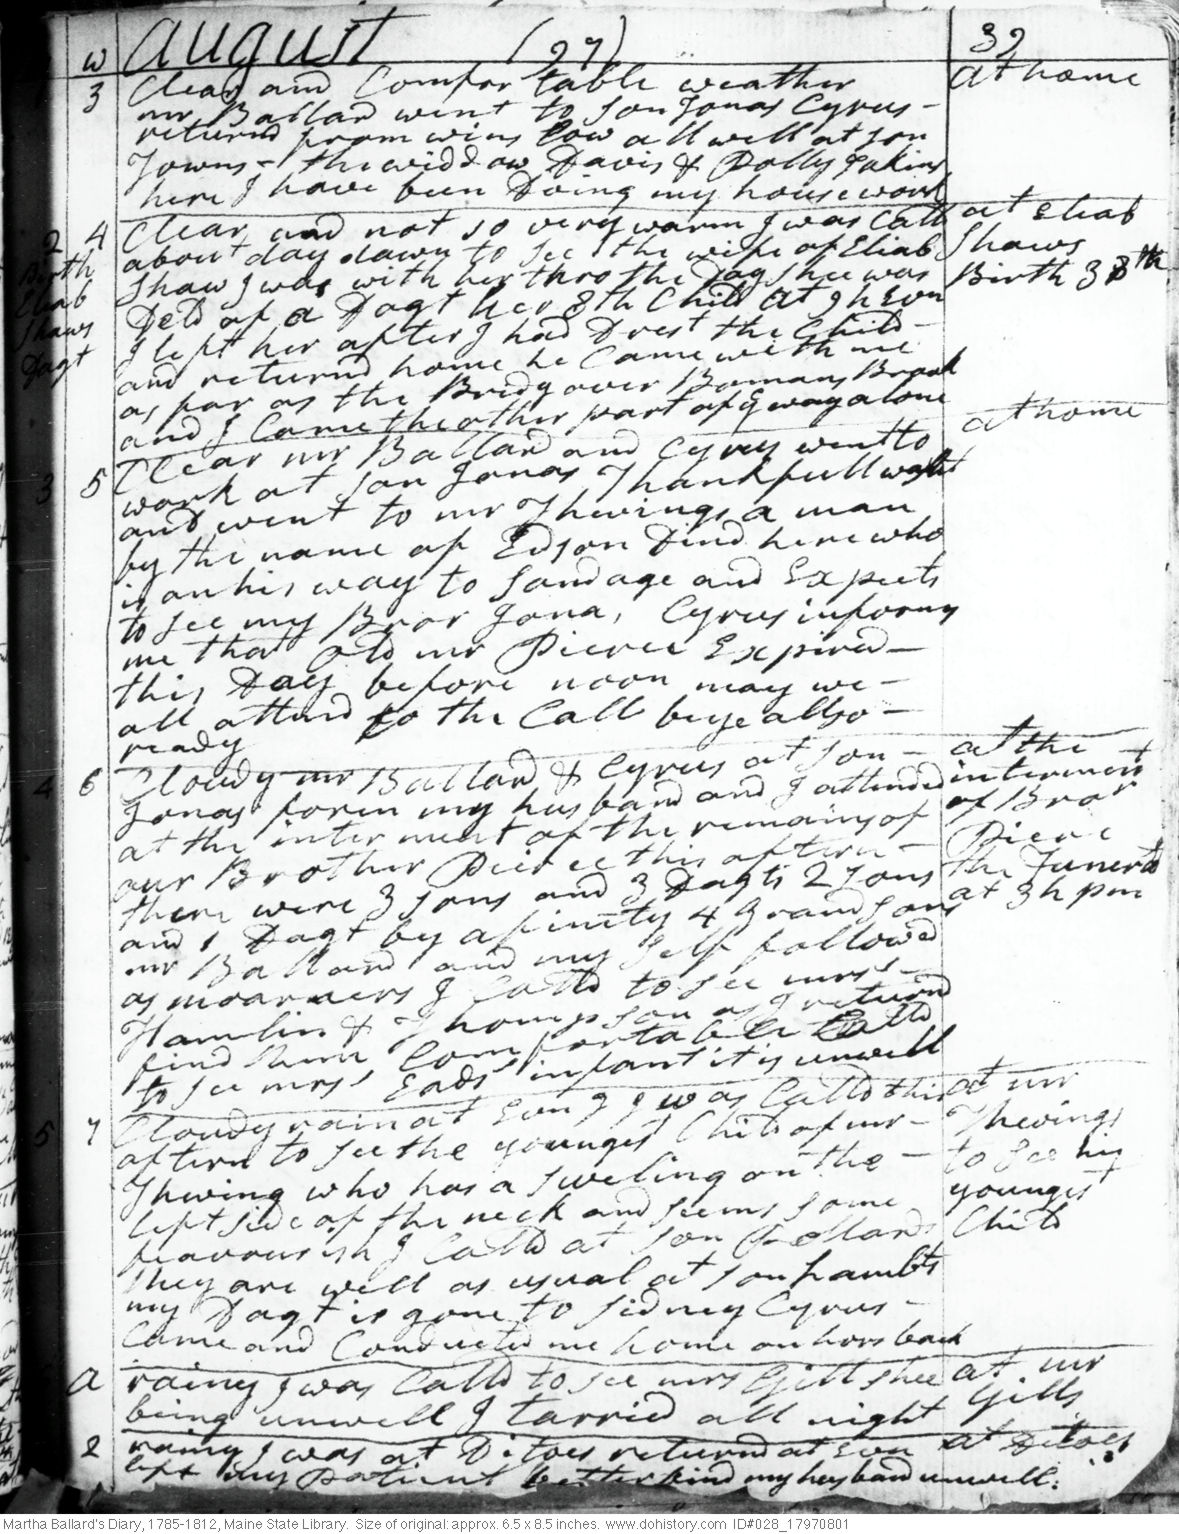 w august (27) 32
3 Clear and Comfortable weather at home
mr Ballard went to son Jonas Cyrus -
returnd from wins low all well at son
Towns - the widdow Davis & Polly
here I have been Doing my housework
2 4 Clear and not so very warm I was Calld at Eliab
Birth about day dawn to see the wife of Eliab Shaws
Eliab Shaw I was with her thro the Day shee was Birth 38th
Shaws Deld of a Dagt her 8th Child at 9h Evn
Dagt I left her after I had Drest the Child -
and returnd home he Came with me
as far as the Bridg over Bomans Brook
and I Came the other part of ye way alone
3 5 Clear mr Ballard and Cyrus went to at home
work at son Jonas Thankfull washt
and went to mr Thewings a man
by the name of Edson Dind here who
is on his way to Sandage and Expects
to see my Bror Jona, Cyrus informs
me that old mr Pierce Expired -
this Day before noon may we -
all attend to the Call be ye allso -
ready
4 6 Cloudy mr Ballard & Cyrus at son - at the
Jonas foren my husband and I attended interment
at the interment of the remains of of Bror
our Brother Pierce this aftern - Pierc
there were 3 sons and 3 Dagts 2 sons the Funeral
and 1 Dagt by afinity 4 Grand sons at 3h pm
mr Ballard and my self followed
as moarners I Calld to see mrss -
Hamlin & Thompson as I returnd
find them Comfortable Calld
to see mrss Eads infant it is unwell
5 7 Cloudy rain at Evng I was Calld this at mr
aftern to see the youngest Child of mr - Thewings
Thewing who has a sweling on the - to see his
left side of the neck and seems some youngest
feavourish I Calld at son Pollards Child
they are well as usual at son Lambts
my Dagt is gone to Sidney Cyrus -
Came and Conducted me home on hors back
A rainy I was Calld to see mrs Gill shee at mr
being unwell I tarried all night Gills
2 rainy I was at Ditoes returnd at Evn at Ditoes
left my patient better find my husband unwell.
Martha Ballard's Diary, 1785-1812, Maine State Library. Size of original: approx. 6.5 x 8.5 inches. www.dohistory.com ID#028_17970801